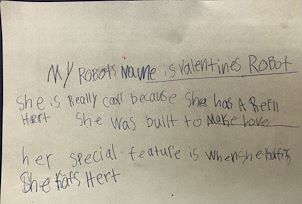 My Robots Name is valentines Robot
She is Really cool because She has A Reell
Hert She was built to Make Love
her special feature is when she
She Hert